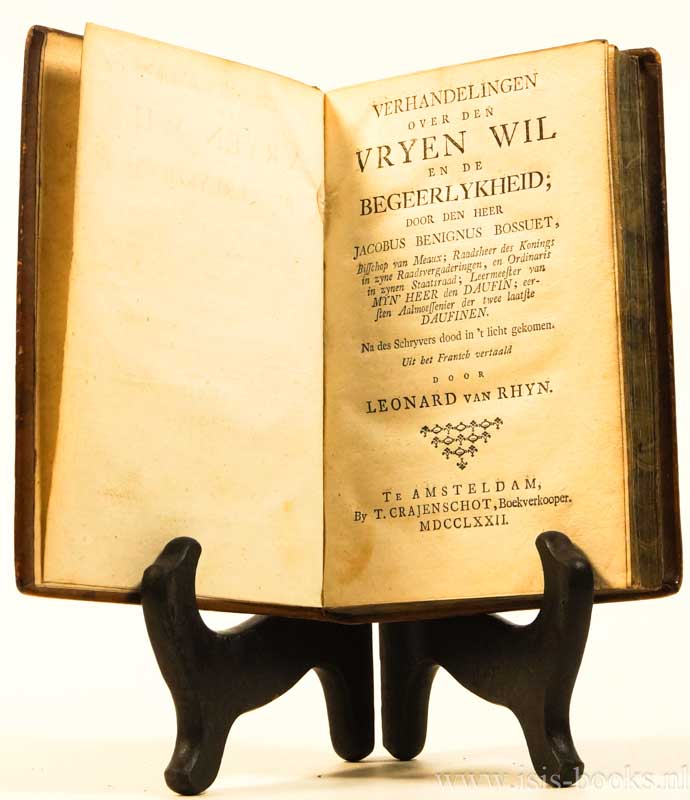 VERHANDELINGEN
OVER DEN
VRYEN WIL
EN DE
BEGEERLYKHEID;
DOOR DEN HEER
JACOBUS BENIGNUS BOSSUET,
Biſſchop van Meaux; Raadsheer des Konings
in zyne Raadsvergaderingen, en Ordinaris
in zynen Staatsraad; Leermeeſter van
MYN' HEER den DAUFIN; eer-
ſten Aalmoeſſenier der twee laatſte
DAUFINEN.
Na des Schryvers dood in 't licht gekomen.
Uit het Franſch vertaald
DOOR
LEONARD VAN RHYN.
TE AMSTELDAM,
By T. CRAJENSCHOT, Boekverkooper.
MDCCLXXII.
www.isis-books.nl